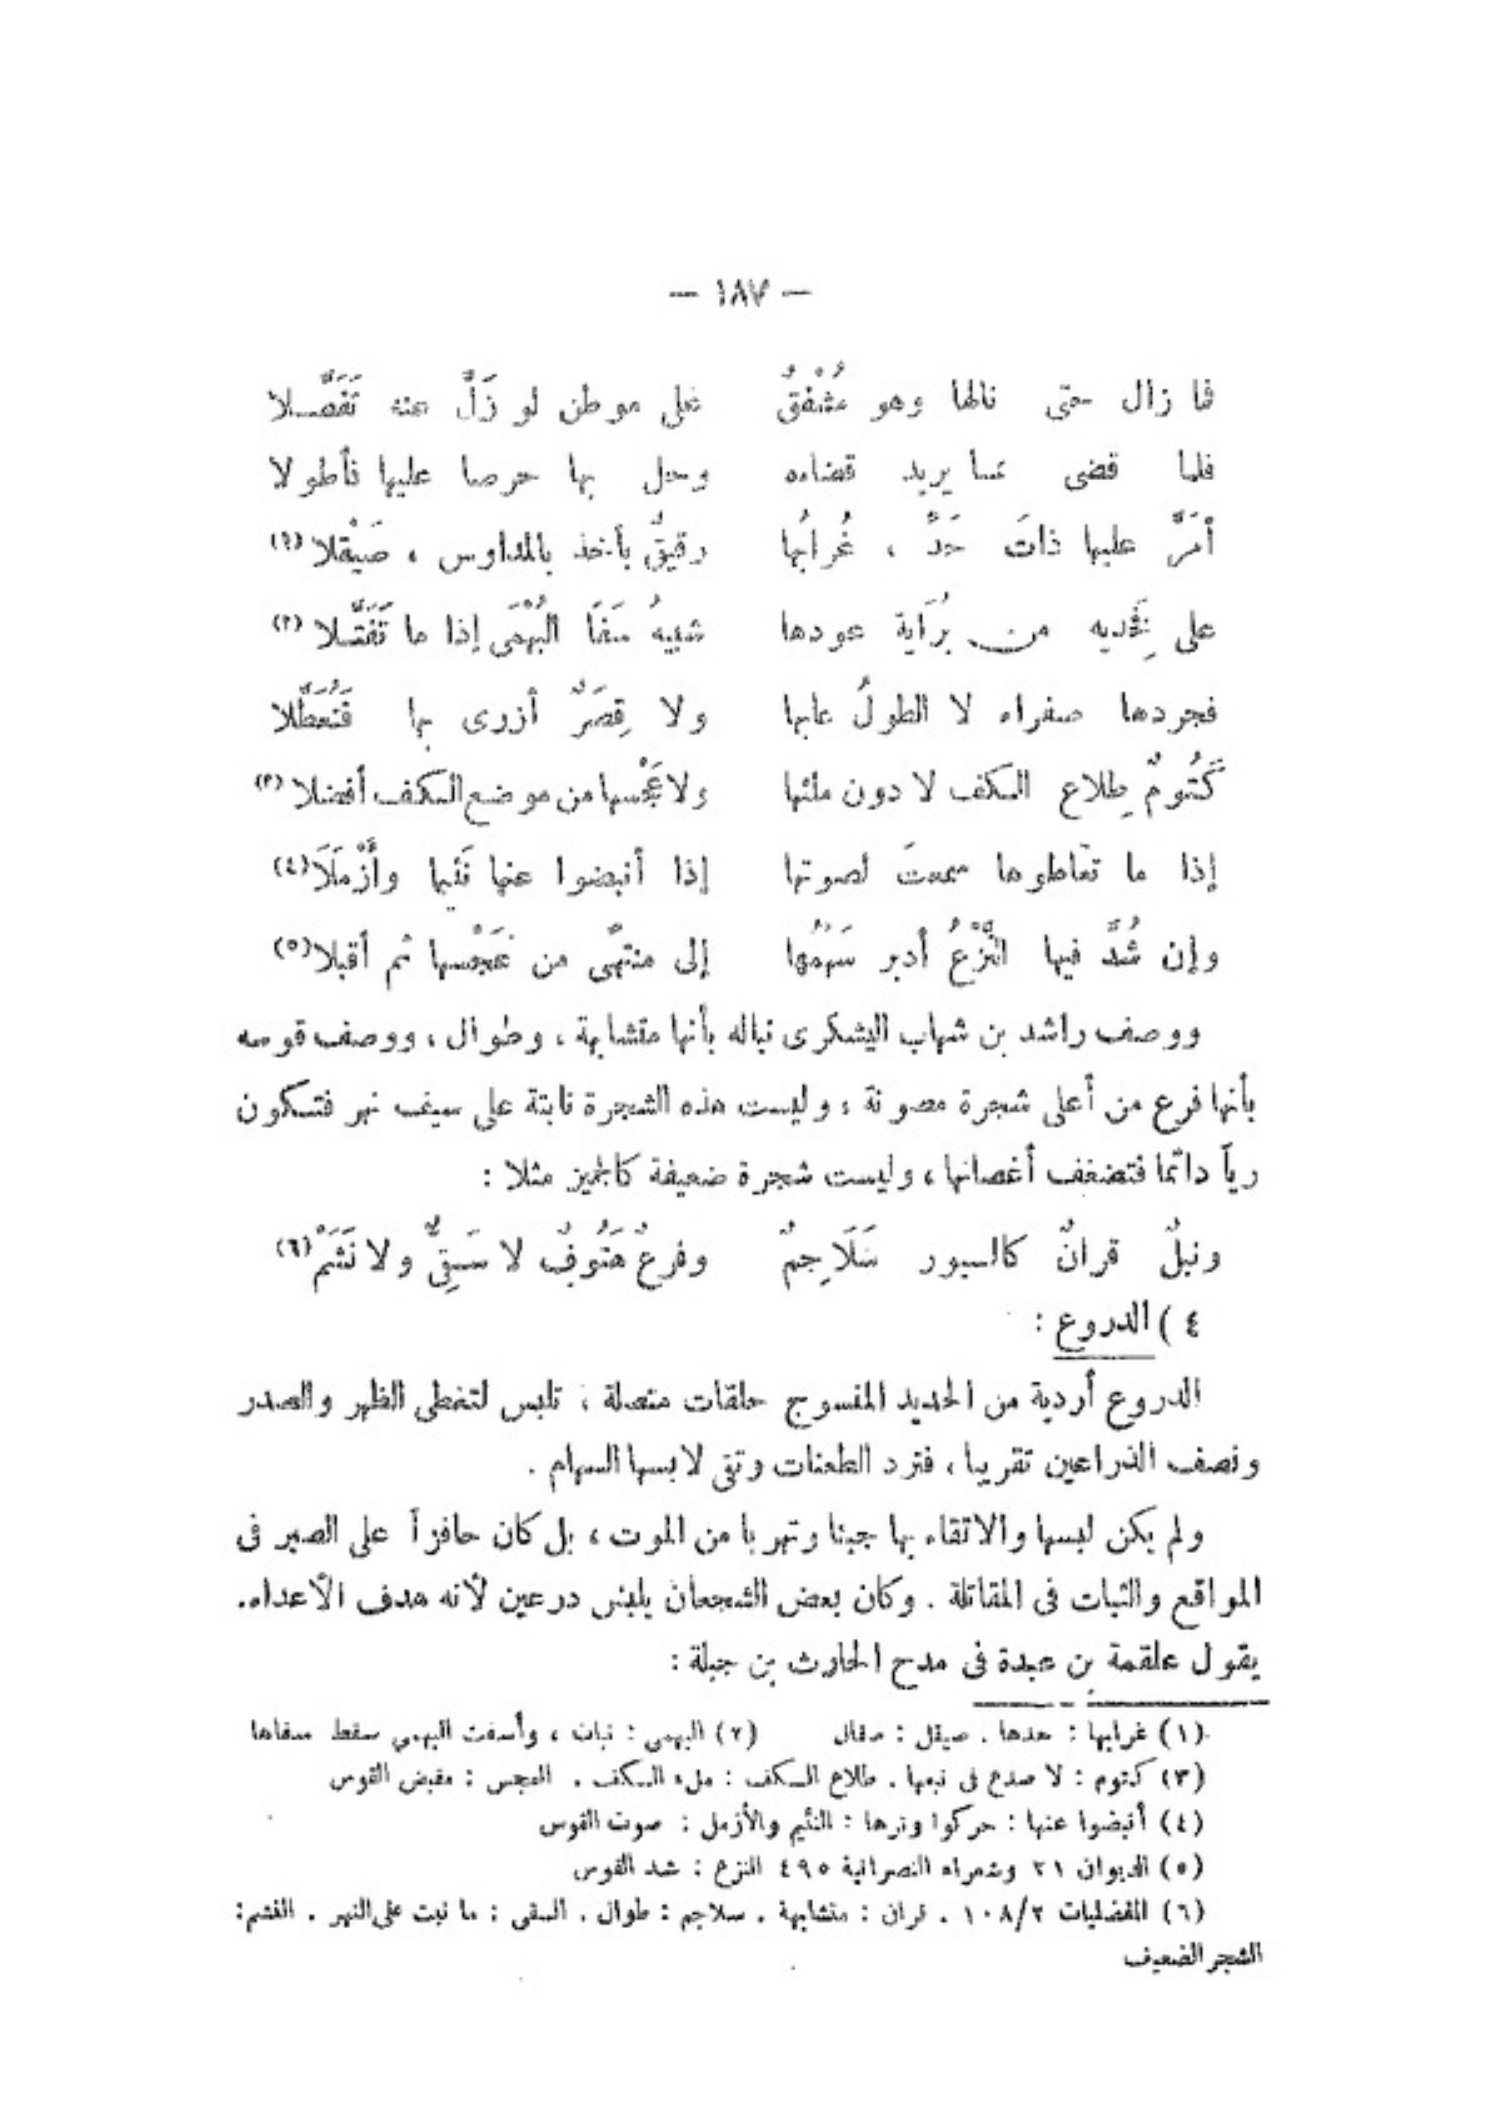 — ١٨٧ —
فما زال حتى نالها وهو مُشْفقٌ على موطن لو زَلَّ عنه تَفَصَّلا
فلما قضى مما يريد قضاءه وحل بها حرصا عليها فأطولا
أمَرَّ عليها ذاتَ حَدٍّ ، غُرابُها رقيقٌ بأخذ بالمداوس ، صَيْقلا (١)
على فَخِذيه من بُرَاية عودها شبيهُ سَفَا البُهْمَى إذا ما تَفَتَّلا (٢)
فجردها صفراء لا الطولُ عابها ولا قِصَرٌ أزرى بها فَتُعطَّلا
كَتُومٌ طِلاع الكف لا دون ملئها ولا عَجْسها من موضع الكف أفضلا (٣)
إذا ما تعاطوها سمعتَ لصوتها إذا أنبضوا عنها نَئيما وأَزْمَلَا (٤)
وإن شُدَّ فيها النَّزْعُ أدبر سَهْمُها إلى منتهًى من عَجْسها ثم أقبلا (٥)
ووصف راشد بن شهاب اليشكرى نباله بأنها متشابهة ، وطوال ، ووصف قوسه
بأنها فرع من أعلى شجرة مصونة ، وليست هذه الشجرة نابتة على سيف نهر فتكون
رياً دائما فتضعف أغصانها ، وليست شجرة ضعيفة كالجميز مثلا :
ونبلٌ قرانٌ كالسيور سَلَاجِمٌ وفرعٌ هَتُوفٌ لا سَقِىٌّ ولا نَشَمْ (٦)
٤ ) الدروع :
الدروع أردية من الحديد المنسوج حلقات متصلة ، تلبس لتغطى الظهر والصدر
ونصف الذراعين تقريبا ، فترد الطعنات وتقى لابسها السهام .
ولم يكن لبسها والاتقاء بها جبنا وتهربا من الموت ، بل كان حافزاً على الصبر فى
المواقع والثبات فى المقاتلة . وكان بعض الشجعان يلبس درعين لأنه هدف الأعداء.
يقول علقمة بن عبدة فى مدح الحارث بن جبلة :
(١) غرابها : حدها . صيقل : صقال (٢) البهمى : نبات ، وأسفت البهمي سقط سفاها
(٣) كتوم : لا صدع فى نبعها . طلاع الكف : ملء الكف . العجس : مقبض القوس
(٤) أنبضوا عنها : حركوا وترها : النئيم والأزمل : صوت القوس
(٥) الديوان ٢١ وشعراء النصرانية ٤٩٥ النزع : شد القوس
(٦) المفضليات ١٠٨/٢ . قران : متشابهة . سلاجم : طوال . السقى : ما نبت على النهر . الغشم:
الشجر الضعيف